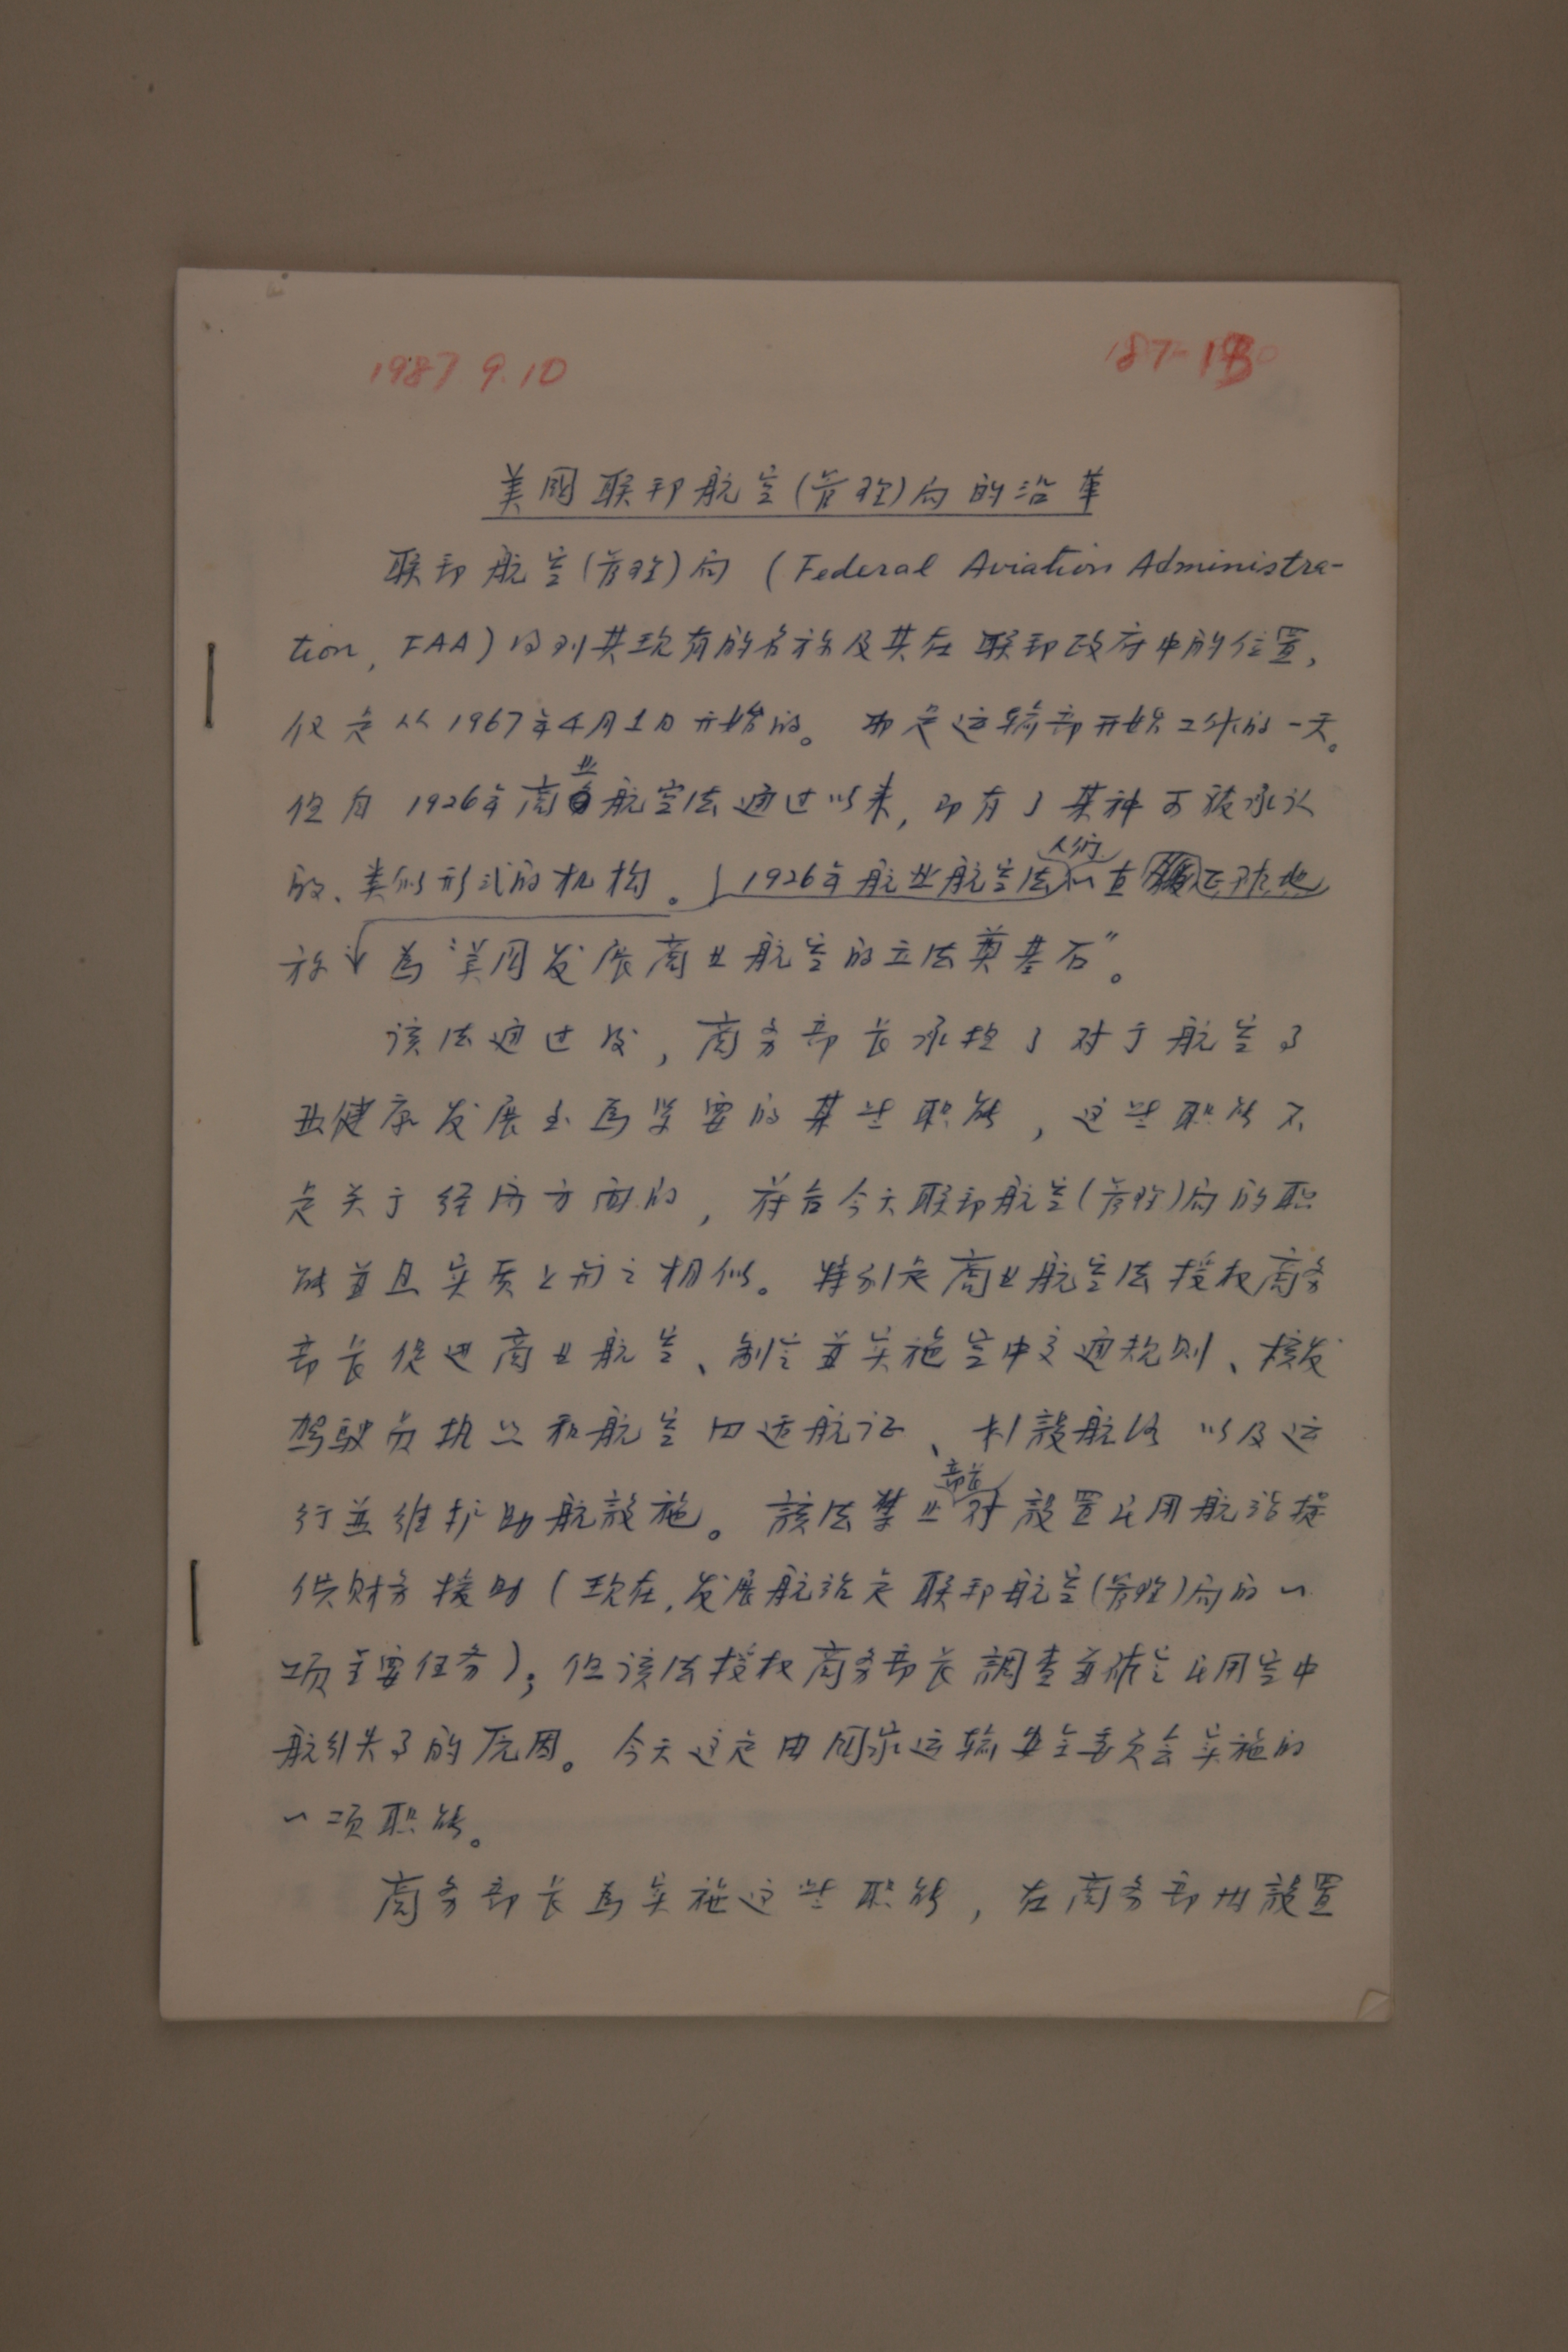 1987 9.10
187-1
美國联邦航空(管理)局的沿革
联邦航空(管理)局 (Federal Aviation Administra-
tion, FAA) 得到其现有的名称及其在联邦政府中的位置,
仅是从1967年4月1日开始的。那是运输部开始工作的一天。
但自1926年商业航空法通过以来,即有了某种可被承认
的、类似形式的机构。1926年航业航空法人们一直正确地
称为“美国发展商业航空的立法奠基石”。
该法通过后,商务部长承担了对于航空事
业健康发展至为紧要的某些职能,这些职能不
是关于经济方面的,符合今天联邦航空(管理)局的职
能並且实质上与之相似。特别是商业航空法授权商务
部长促进商业航空、制定並实施空中交通规则、核发
驾驶员执照和航空四适航证、判設航路以及运
行並维护助航設施。該法禁止部长对設置民用航站提
供财务援助(现在,发展航站是联邦航空(管理)局的一
项主要任务);但该法授权商务部长調查並确定民用空中
航行失事的原因。今天这是由国家运输安全委员会实施的
一项职能。
商务部长為实施这些职能,在商务部内設置